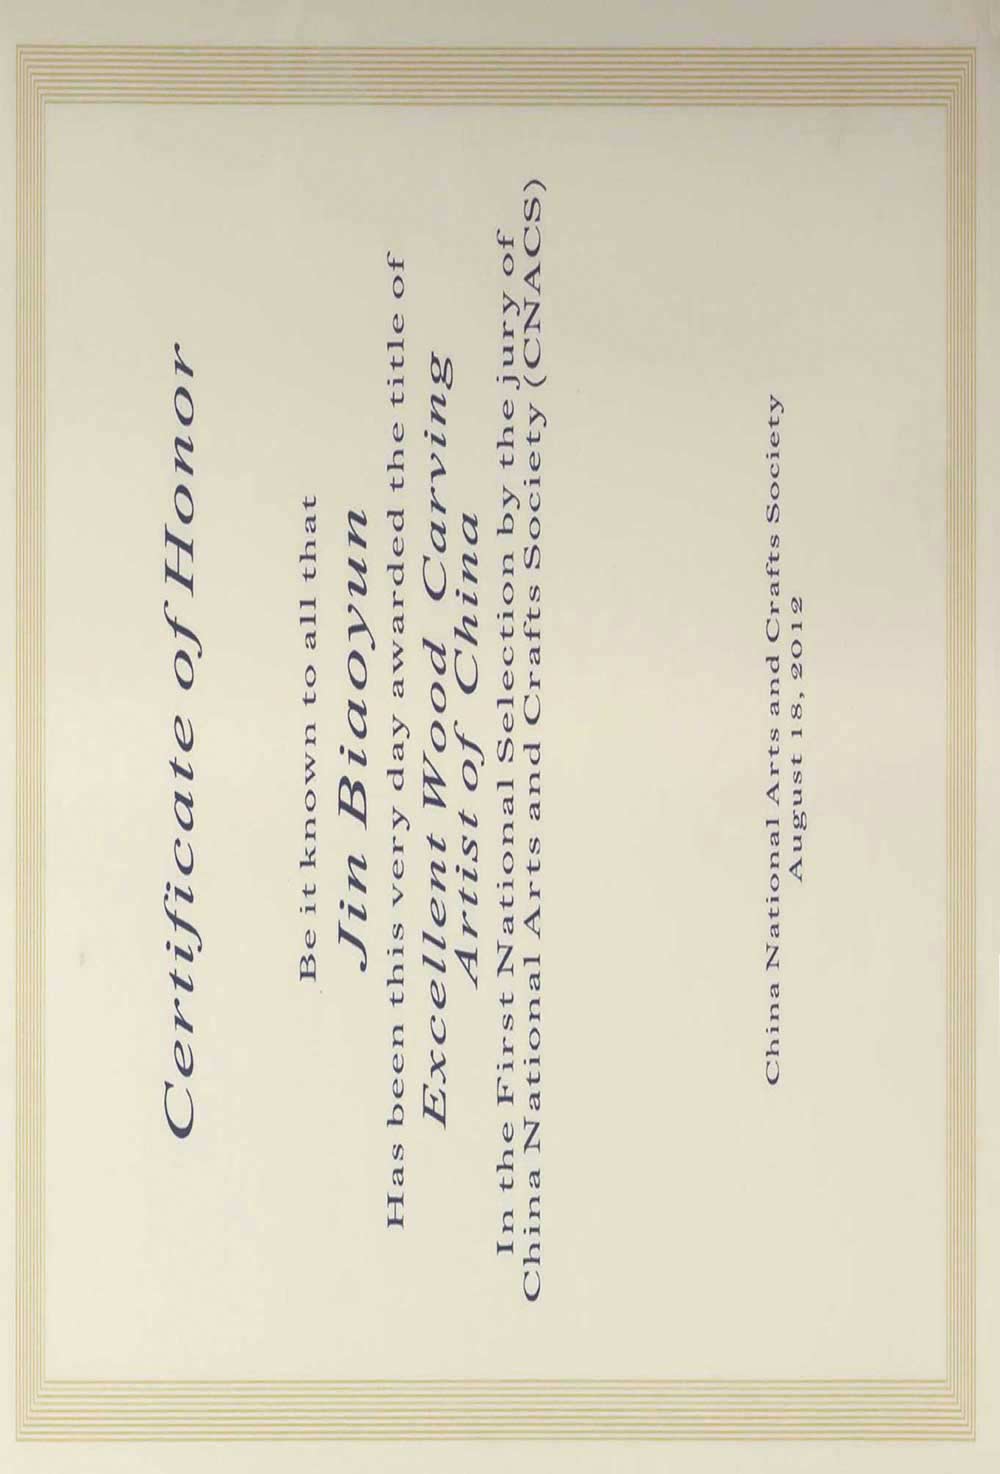 Certificate of Honor
Be it known to all that
Jin Biaoyun
Has been this very day awarded the title of
Excellent Wood Carving
Artist of China
In the First National Selection by the jury of
China National Arts and Crafts Society (CNACS)
China National Arts and Crafts Society
August 18, 2012